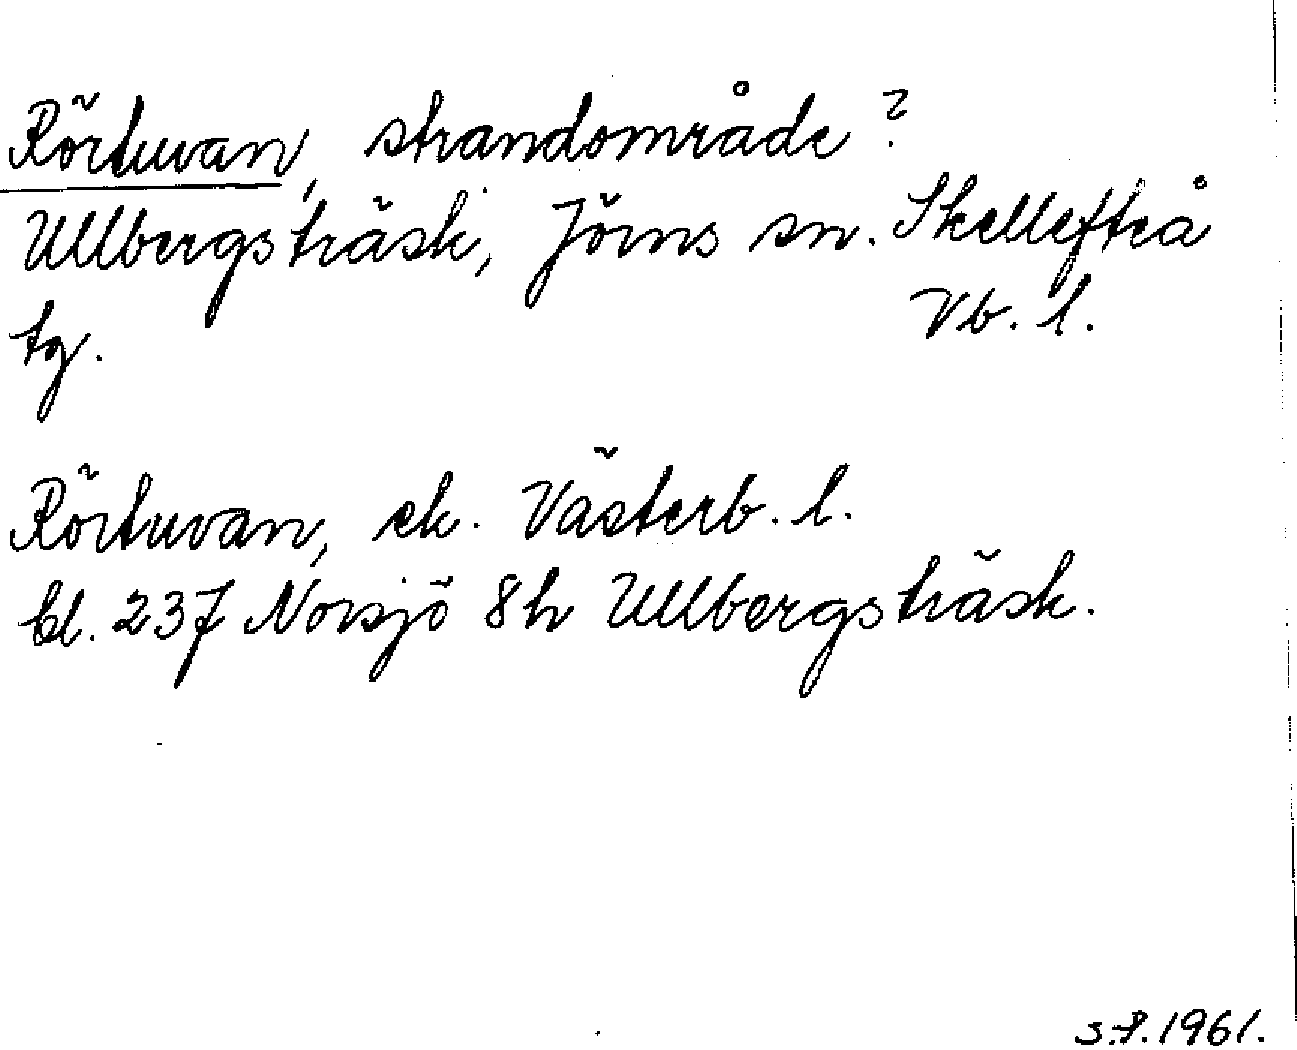 Rörtuvan, strandområde?
Ullbergsträsk, Jörns sn. Skellefteå
tg. Vb. l.
Rörtuvan, ek. Västerb. l.
bl. 237 Norsjö 8h Ullbergsträsk.
1961.